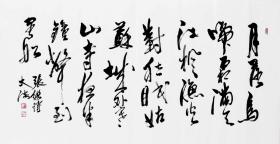 月落烏
啼霜滿天
江楓漁火
對愁眠姑
蘇城外寒
山寺夜半
鐘聲到
客船
張繼詩